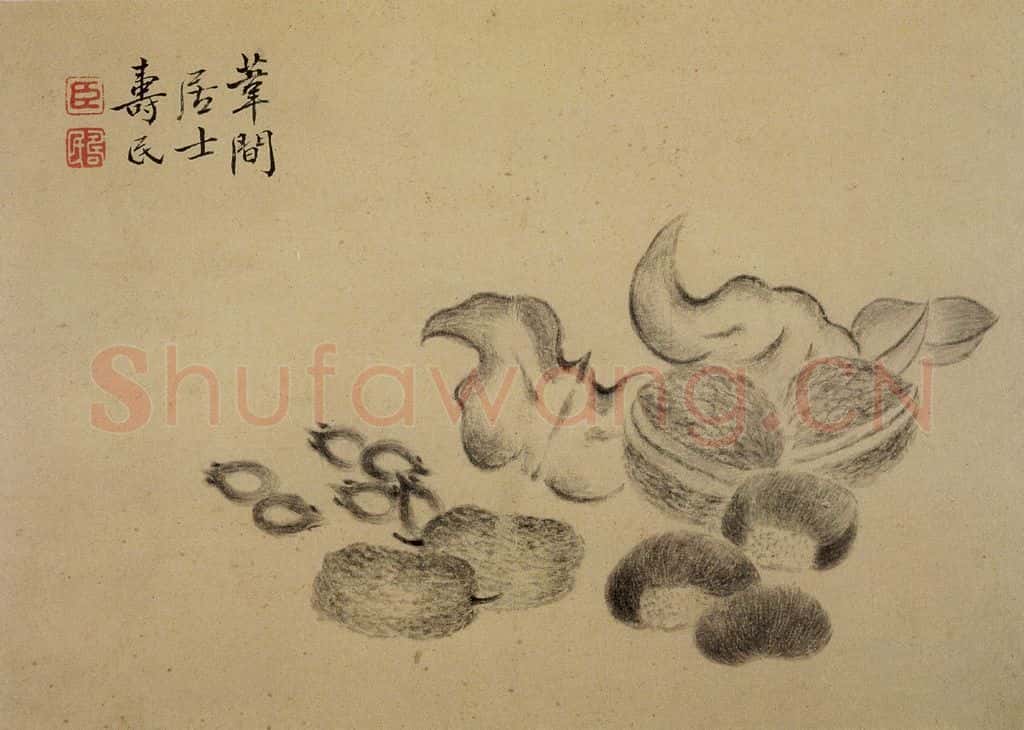 葦間
居士
壽民
臣
Shufawang.CN